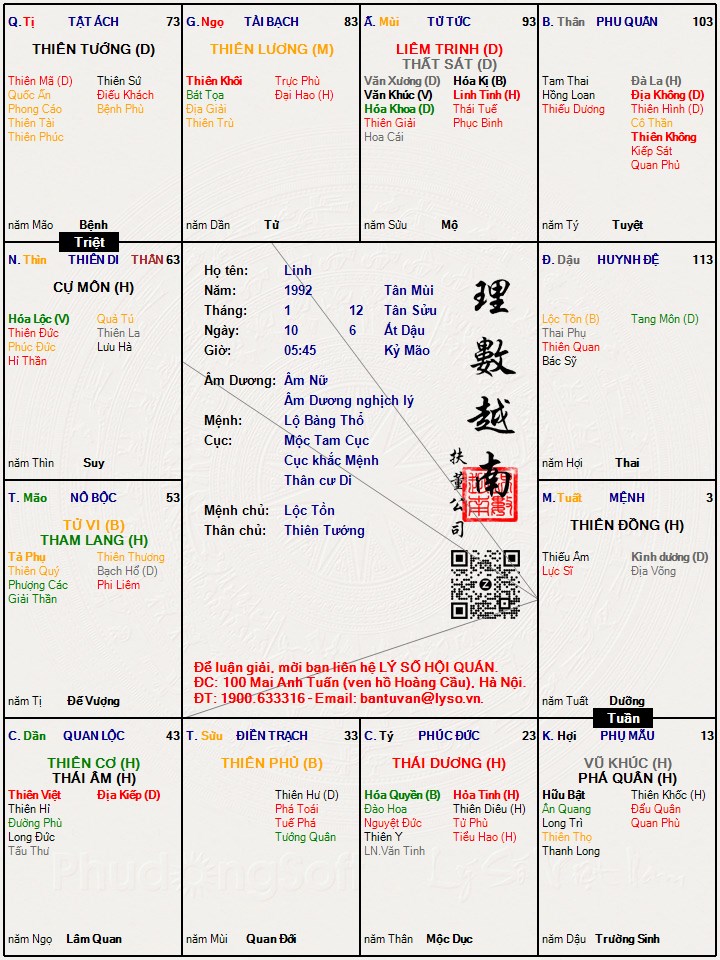 Q. Tị TẬT ÁCH 73
THIÊN TƯỚNG (D)
Thiên Mã (D) Thiên Sứ
Quốc Ấn Điếu Khách
Phong Cáo Bệnh Phù
Thiên Tài
Thiên Phúc
năm Mão Bệnh
G. Ngọ TÀI BẠCH 83
THIÊN LƯƠNG (M)
Thiên Khôi Trực Phù
Bát Tọa Đại Hao (H)
Địa Giải
Thiên Trù
năm Dần Tử
Ấ. Mùi TỬ TỨC 93
LIÊM TRINH (D)
THẤT SÁT (D)
Văn Xương (D) Hóa Kị (B)
Văn Khúc (V) Linh Tinh (H)
Hóa Khoa (D) Thái Tuế
Thiên Giải Phục Binh
Hoa Cái
năm Sửu Mộ
B. Thân PHU QUÂN 103
Tam Thai Đà La (H)
Hồng Loan Địa Không (D)
Thiếu Dương Thiên Hình (D)
Cô Thần
Thiên Không
Kiếp Sát
Quan Phủ
năm Tý Tuyệt
Triệt
N. Thìn THIÊN DI THÂN 63
CỰ MÔN (H)
Hóa Lộc (V) Quả Tú
Thiên Đức Thiên La
Phúc Đức Lưu Hà
Hỉ Thần
năm Thìn Suy
Họ tên: Linh
Năm: 1992 Tân Mùi
Tháng: 1 12 Tân Sửu
Ngày: 10 6 Ất Dậu
Giờ: 05:45 Kỷ Mão
Âm Dương: Âm Nữ
Âm Dương nghịch lý
Mệnh: Lộ Bàng Thổ
Cục: Mộc Tam Cục
Cục khắc Mệnh
Thân cư Di
Mệnh chủ: Lộc Tồn
Thân chủ: Thiên Tướng
理數越南
扶董公司
Để luận giải, mời bạn liên hệ LÝ SỐ HỘI QUÁN.
ĐC: 100 Mai Anh Tuấn (ven hồ Hoàng Cầu), Hà Nội.
ĐT: 1900.633316 - Email: bantuvan@lyso.vn.
Đ. Dậu HUYNH ĐỆ 113
Lộc Tồn (B) Tang Môn (D)
Thai Phụ
Thiên Quan
Bác Sỹ
năm Hợi Thai
T. Mão NÔ BỘC 53
TỬ VI (B)
THAM LANG (H)
Tả Phụ Thiên Thương
Thiên Quý Bạch Hổ (D)
Phượng Các Phi Liêm
Giải Thần
năm Tị Đế Vượng
M. Tuất MỆNH 3
THIÊN ĐỒNG (H)
Thiếu Âm Kình dương (D)
Lực Sĩ Địa Võng
năm Tuất Dưỡng
Tuần
C. Dần QUAN LỘC 43
THIÊN CƠ (H)
THÁI ÂM (H)
Thiên Việt Địa Kiếp (D)
Thiên Hỉ
Đường Phù
Long Đức
Tấu Thư
năm Ngọ Lâm Quan
T. Sửu ĐIỀN TRẠCH 33
THIÊN PHỦ (B)
Thiên Hư (D)
Phá Toái
Tuế Phá
Tướng Quân
năm Mùi Quan Đới
C. Tý PHÚC ĐỨC 23
THÁI DƯƠNG (H)
Hóa Quyền (B) Hỏa Tinh (H)
Đào Hoa Thiên Diêu (H)
Nguyệt Đức Tử Phù
Thiên Y Tiểu Hao (H)
LN.Văn Tinh
năm Thân Mộc Dục
K. Hợi PHỤ MẪU 13
VŨ KHÚC (H)
PHÁ QUÂN (H)
Hữu Bật Thiên Khốc (H)
Ân Quang Đẩu Quân
Long Trì Quan Phù
Thiên Thọ
Thanh Long
năm Dậu Trường Sinh